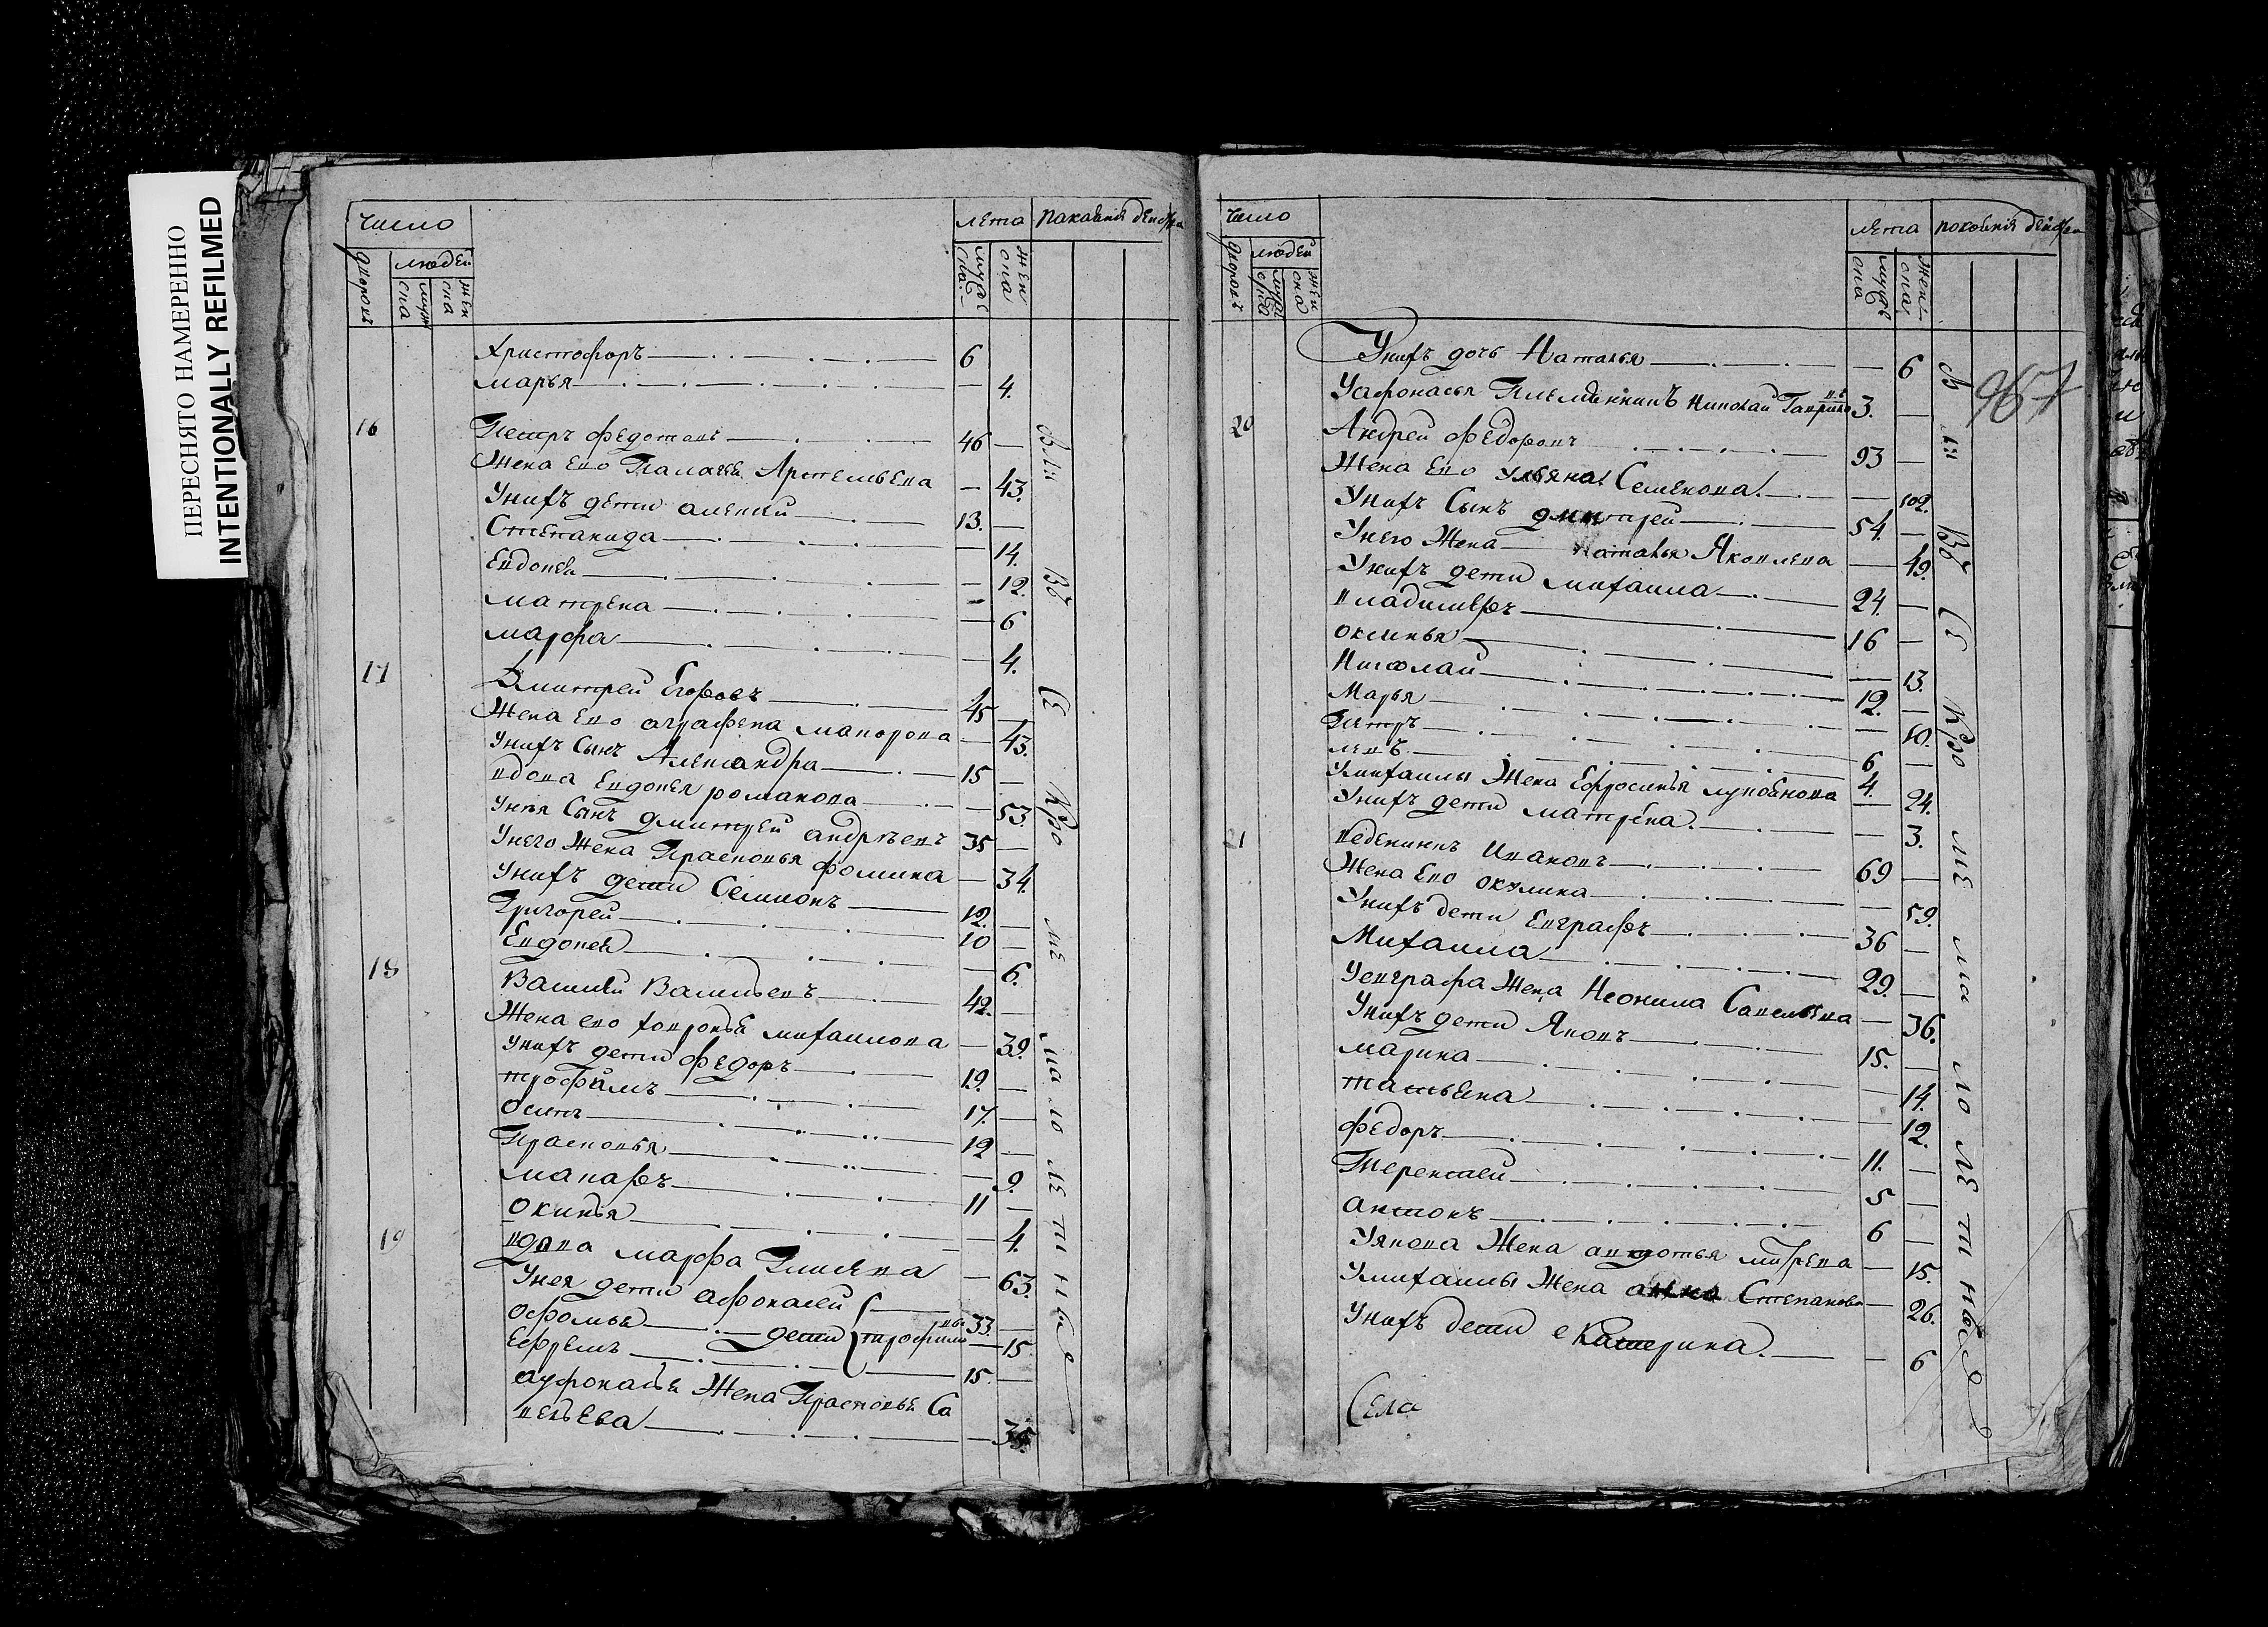 ПЕРЕСНЯТО НАМЕРЕННО
INTENTIONALLY REFILMED
число
лета
покаяния
дворовъ
людей
муж
ска
жен
ска
муже
ска
жен
ска
Христофоръ 6
марья 4.
16 Петръ федотовъ 46
Жена ево Палагея 43.
Унихъ дети алексей 13.
Степанида 14.
Евдокея 12.
матрена 6
марфа 4.
17 Дмитрей Егоровъ 45
Жена ево аграфена макарова 43.
Унихъ Сынъ Александра 15
вдова Евдокея романова 53.
Унея Сынъ дмитрей андреевъ 35
Унего Жена Прасковья фомина 34.
Унихъ дети Семионъ 12.
Григорей 10
Евдокея 6.
18 Василей Васильевъ 42.
Жена ево михаилова 39.
Унихъ дети федоръ 19.
трофимъ 17.
Осипъ 12
Прасковья 9.
макаръ 11
окинья 4.
19 вдова марфа 63.
Унея дети афонасей 33.
15
Ефремъ дети трофимовы 15.
афонасья Жена Прасковья Са
вельева
Все кро ме ма ло ле т ны х
число
лета
покаяния
дворовъ
людей
муже
ска
жен
ска
муже
ска
жен
ска
967
Унихъ дочь Наталья 6
Уафонасья Племянникъ Николай Гаврило въ 3.
20 Андрей федоровъ 93
Жена ево ульяна Семенова 102.
Унихъ Сынъ дмитрей 54.
Унего Жена наталья Яковлева 49.
Унихъ дети михаила 24.
владимеръ 16
оксинья 13.
Николай 12.
Марья 10.
Петръ 6
левъ 4.
Умихаилы Жена Ефросинья 24.
Унихъ дети матрена 3.
21 Ивановъ 69
Жена ево окулина 59.
Унихъ дети Евграфъ 36
Михаила 29.
Уевграфа Жена Неонила Савельева 36.
Унихъ дети Яковъ 15.
марина 14.
татьяна 12.
федоръ 11.
Терентей 5
антонъ 6
Уякова Жена авдотья 15.
Умихаилы Жена анна Степанова 26.
Унихъ дети екатерина 6
Села
Все кро ме ма ло ле т ны х